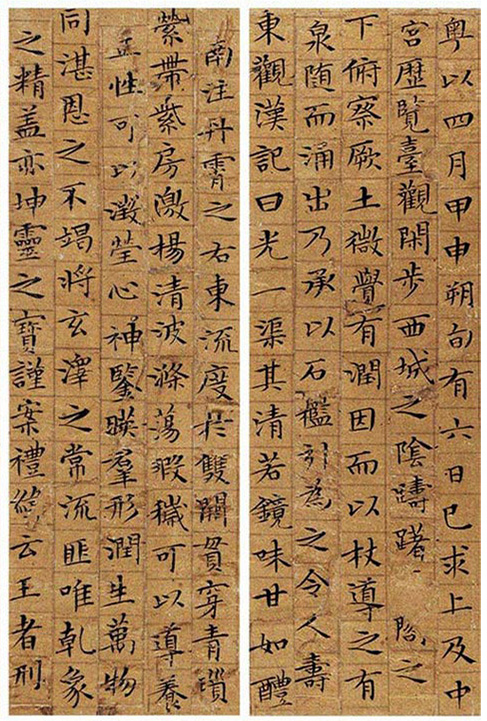 粵以四月甲申朔旬有六日巳求上及中
宮歷覽臺觀閑步西城之陰躊躇閣之
下俯察厥土微覺有潤因而以杖導之有
泉随而涌出乃承以石檻引為之令人壽
東觀漢記曰光一渠其清若鏡味甘如醴
南注丹霄之右東流度於雙闕貫穿青瑣
縈帶紫房激楊清波滌蕩瑕穢可以導養
性可以澂瑩心神鑒暎羣形潤生萬物
同湛恩之不竭將玄澤之常流匪唯乹象
之精盖亦坤靈之寶謹案禮緯云王者刑